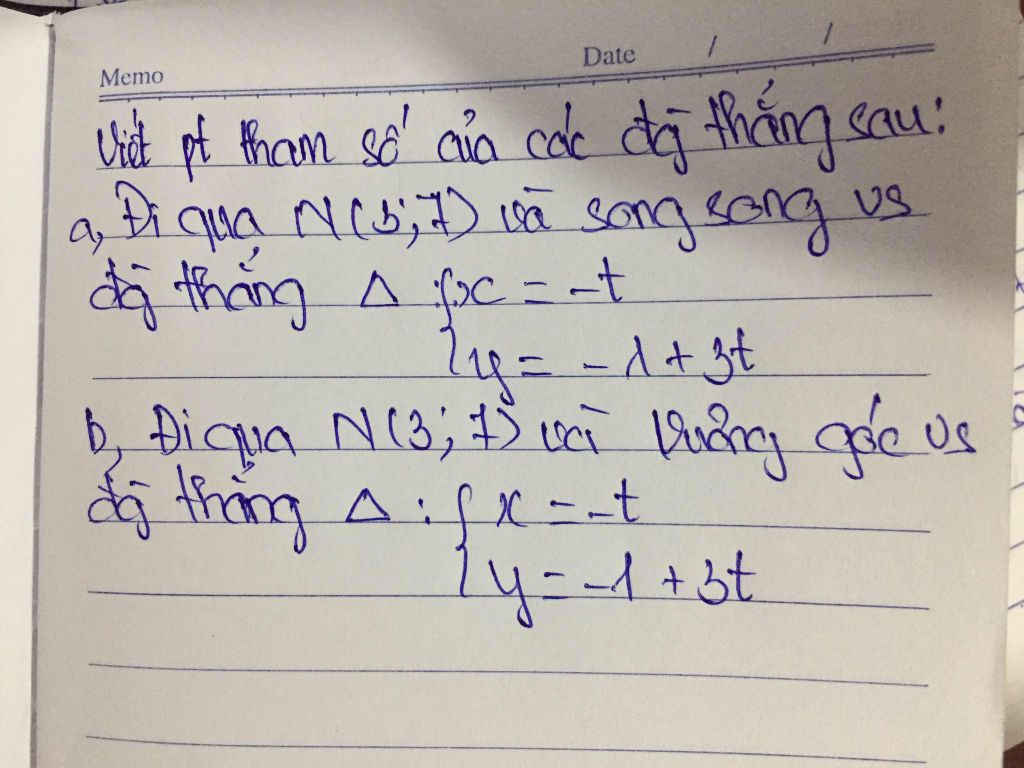 Memo
Date / /
Viết pt tham số của các đg thẳng sau:
a, Đi qua N(3;7) và song song vs
đg thẳng Δ : { x = -t
y = -1 + 3t
b, Đi qua N(3;7) và vuông góc vs
đg thẳng Δ : { x = -t
y = -1 + 3t